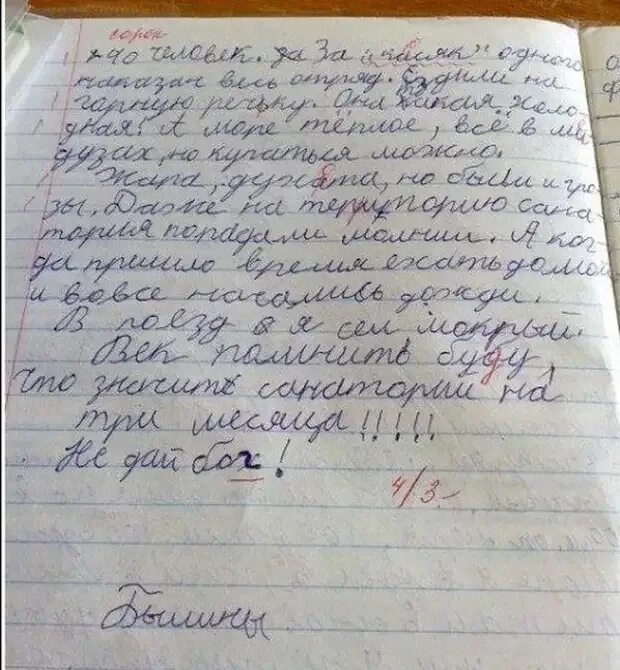 сорок
40 человек. За "косяк" одного
наказан весь отряд. Ездили на
горную речьку. Она какая холо
дная! А море тёплое, всё в ме
дузах, но купаться можно.
Жара, духата, но были и гро
зы. Даже на территорию сана-
тория попадали молнии. А ког
да пришло время ехать домой
и вовсе начались дожди.
В поезд я сел мокрый.
Век помнить буду,
что значить санаторий на
три месяца!!!!!
Не дай бох!
4/3-
Былины